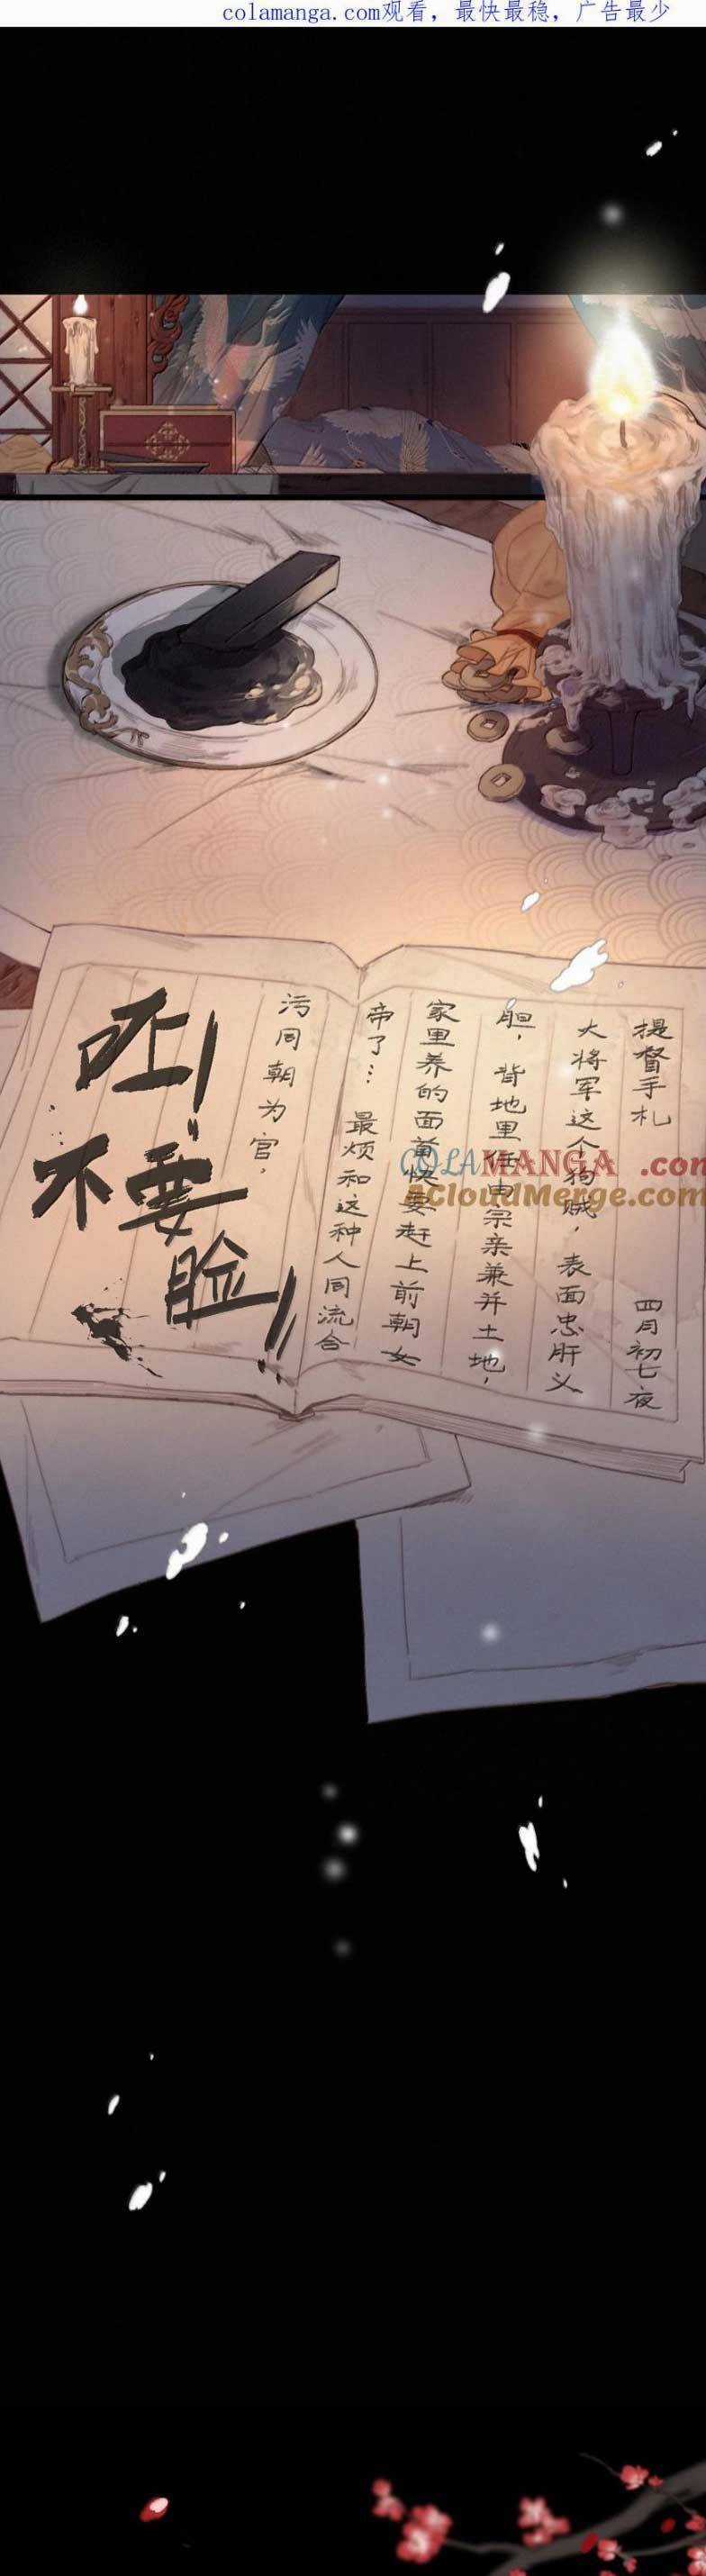 colamanga.com观看，最快最稳，广告最少
提督手札
四月初七夜
大将军这个狗贼，表面忠肝义
胆，背地里任由宗亲兼并土地，
家里养的面首快要赶上前朝女
帝了…最烦和这种人同流合
污同朝为官，
呸！
不要
脸！！
COLAMANGA.com
ACloudMerge.com